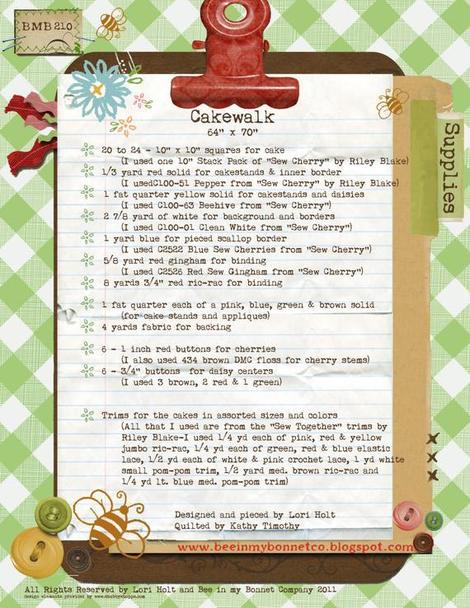 BMB 210
Cakewalk
64" x 70"
Supplies
20 to 24 - 10" x 10" squares for cake
(I used one 10" Stack Pack of "Sew Cherry" by Riley Blake)
1/3 yard red solid for cakestands & inner border
(I usedC100-51 Pepper from "Sew Cherry" by Riley Blake)
1 fat quarter yellow solid for cakestands and daisies
(I used C100-63 Beehive from "Sew Cherry")
2 7/8 yard of white for background and borders
(I used C100-01 Clean White from "Sew Cherry")
1 yard blue for pieced scallop border
(I used C2522 Blue Sew Cherries from "Sew Cherry")
5/8 yard red gingham for binding
(I used C2526 Red Sew Gingham from "Sew Cherry")
8 yards 3/4" red ric-rac for binding
1 fat quarter each of a pink, blue, green & brown solid
(for cake stands and appliques)
4 yards fabric for backing
6 - 1 inch red buttons for cherries
(I also used 434 brown DMC floss for cherry stems)
6 - 3/4" buttons for daisy centers
(I used 3 brown, 2 red & 1 green)
Trims for the cakes in assorted sizes and colors
(All that I used are from the "Sew Together" trims by
Riley Blake-I used 1/4 yd each of pink, red & yellow
jumbo ric-rac, 1/4 yd each of green, red & blue elastic
lace, 1/2 yd each of white & pink crochet lace, 1 yd white
small pom-pom trim, 1/2 yard med. brown ric-rac and
1/4 yd lt. blue med. pom-pom trim)
Designed and pieced by Lori Holt
Quilted by Kathy Timothy
www.beeinmybonnetco.blogspot.com
All Rights Reserved by Lori Holt and Bee in my Bonnet Company 2011
design elements provided by www.shabbyshoppe.com